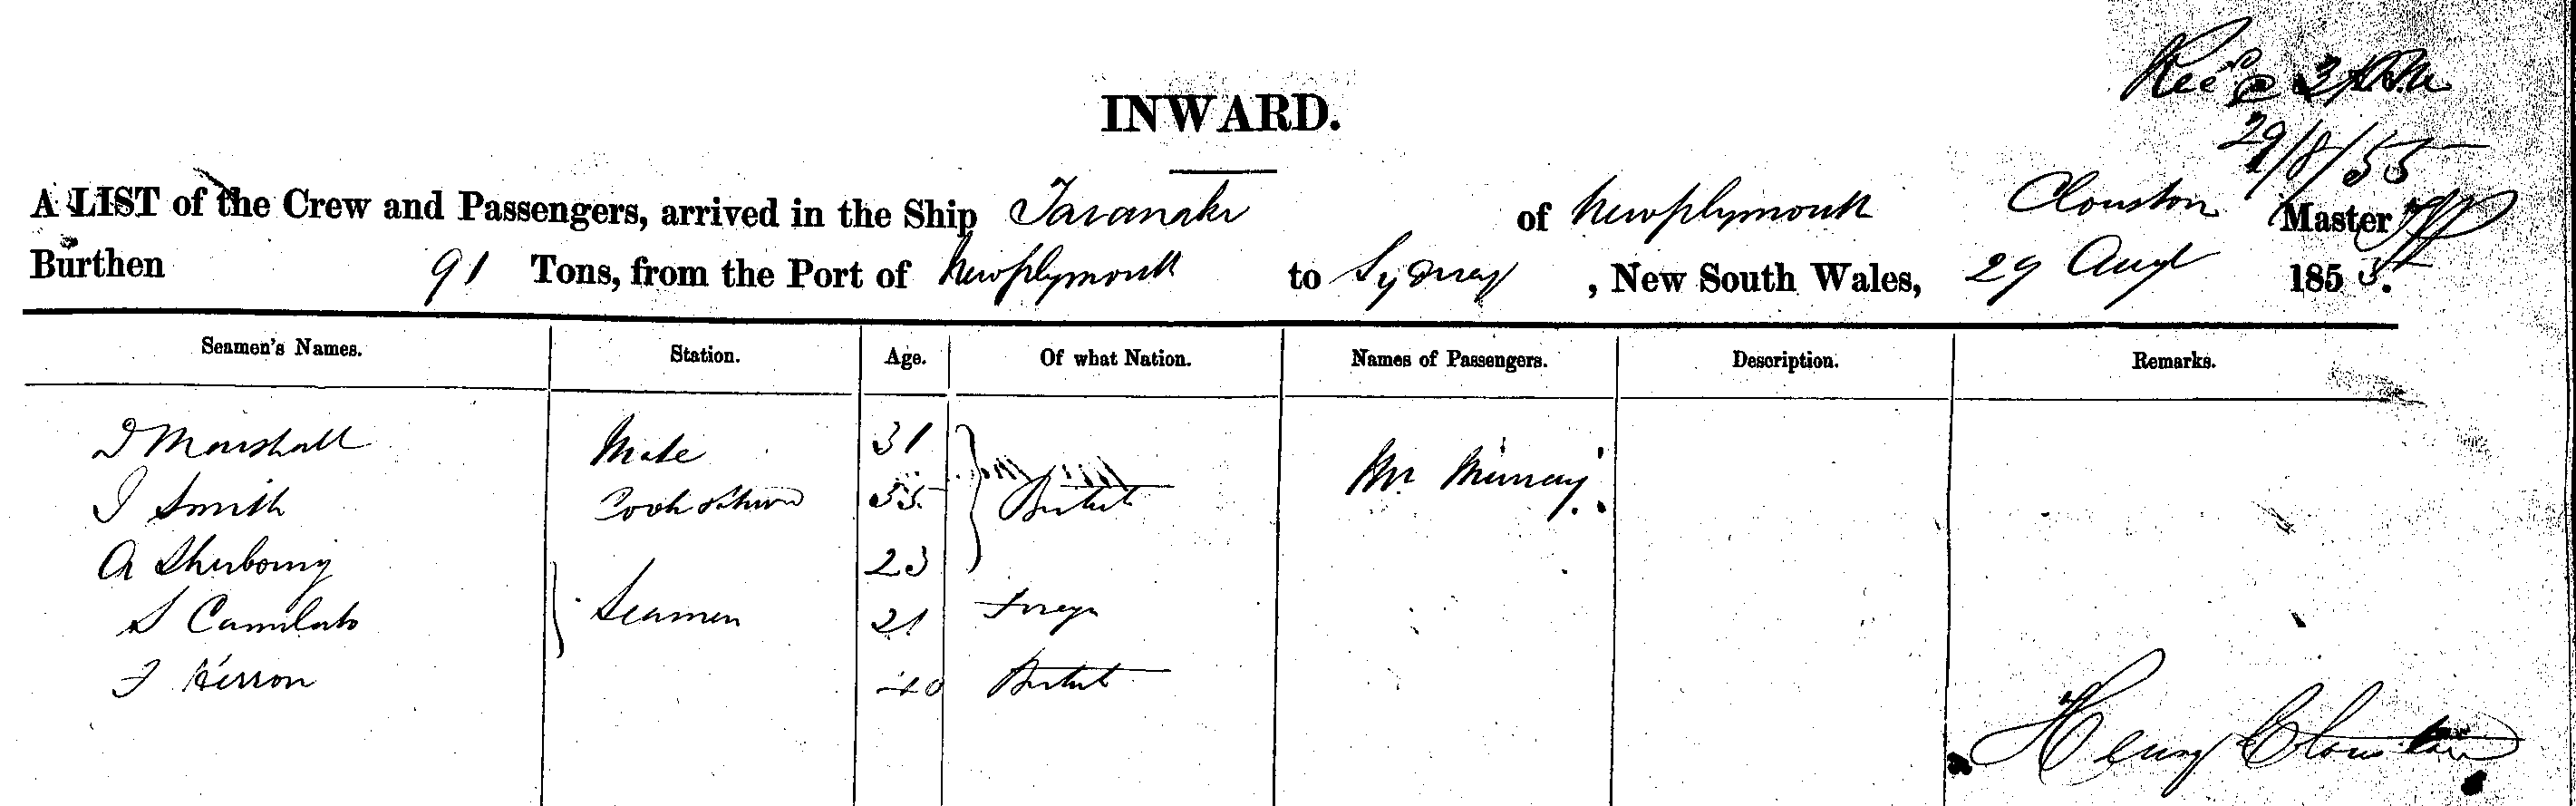 Rec'd @ 3 P.M.
29/8/55
INWARD.
A LIST of the Crew and Passengers, arrived in the Ship Taranaki of Newplymouth Clouston Master
Burthen 91 Tons, from the Port of Newplymouth to Sydney, New South Wales, 29 Augt 1855.
Seamen's Names. Station. Age. Of what Nation. Names of Passengers. Description. Remarks.
Marshall Mate 31
Smith Cook & 55 British Mr Murray
A 23
S Seamen 21 Foreign
Herron 40 British
Henry Clouston